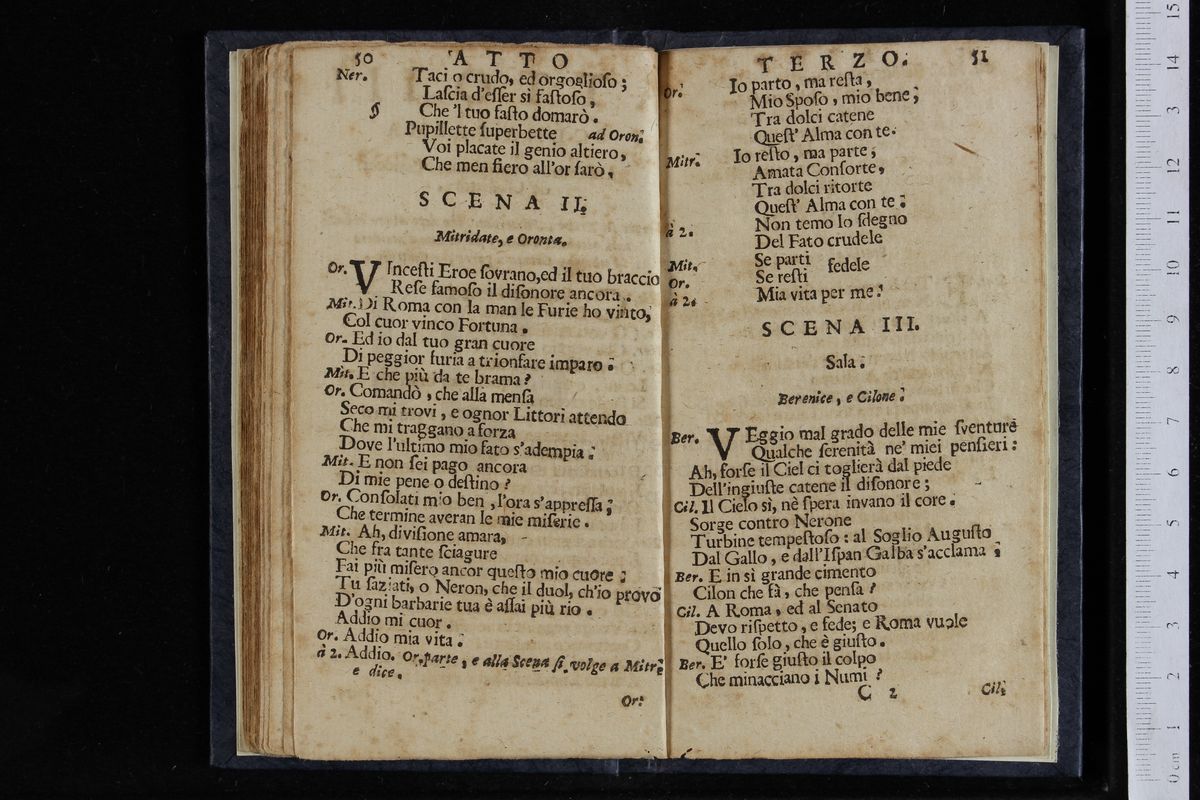 50 ATTO
Ner. Taci o crudo, ed orgoglioſo;
Laſcia d'eſſer sì faſtoſo,
§ Che 'l tuo faſto domarò.
Pupillette ſuperbette ad Oron.
Voi placate il genio altiero,
Che men fiero all'or ſarò,
SCENA II.
Mitridate, e Oronta.
Or. VInceſti Eroe ſovrano, ed il tuo braccio
Reſe famoſo il diſonore ancora.
Mit. Di Roma con la man le Furie ho vinto,
Col cuor vinco Fortuna.
Or. Ed io dal tuo gran cuore
Di peggior furia a trionfare imparo.
Mit. E che più da te brama?
Or. Comandò, che alla menſa
Seco mi trovi, e ognor Littori attendo
Che mi traggano a forza
Dove l'ultimo mio fato s'adempia.
Mit. E non ſei pago ancora
Di mie pene o deſtino?
Or. Conſolati mio ben, l'ora s'appreſſa;
Che termine averan le mie miſerie.
Mit. Ah, diviſione amara,
Che fra tante ſciagure
Fai più miſero ancor queſto mio cuore;
Tu ſaziati, o Neron, che il duol, ch'io provo
D'ogni barbarie tua è aſſai più rio.
Addio mi cuor.
Or. Addio mia vita.
à 2. Addio. Or. parte, e alla Scena ſi volge a Mitr.
e dice.
Or.
TERZO. 51
Or. Io parto, ma reſta,
Mio Spoſo, mio bene;
Tra dolci catene
Queſt' Alma con te.
Mitr. Io reſto, ma parte,
Amata Conſorte,
Tra dolci ritorte
Queſt' Alma con te.
à 2. Non temo lo ſdegno
Del Fato crudele
Mit. Se parti fedele
Or. Se reſti
à 2. Mia vita per me.
SCENA III.
Sala.
Berenice, e Cilone.
Ber. VEggio mal grado delle mie ſventure
Qualche ſerenità ne' miei penſieri:
Ah, forſe il Ciel ci toglierà dal piede
Dell'ingiuſte catene il diſonore;
Cil. Il Cielo sì, nè ſpera invano il core.
Sorge contro Nerone
Turbine tempeſtoſo: al Soglio Auguſto
Dal Gallo, e dall'Iſpan Galba s'acclama;
Ber. E in sì grande cimento
Cilon che fà, che penſa?
Cil. A Roma, ed al Senato
Devo riſpetto, e fede; e Roma vuole
Quello ſolo, che è giuſto.
Ber. E' forſe giuſto il colpo
Che minacciano i Numi?
C 2 Cil.